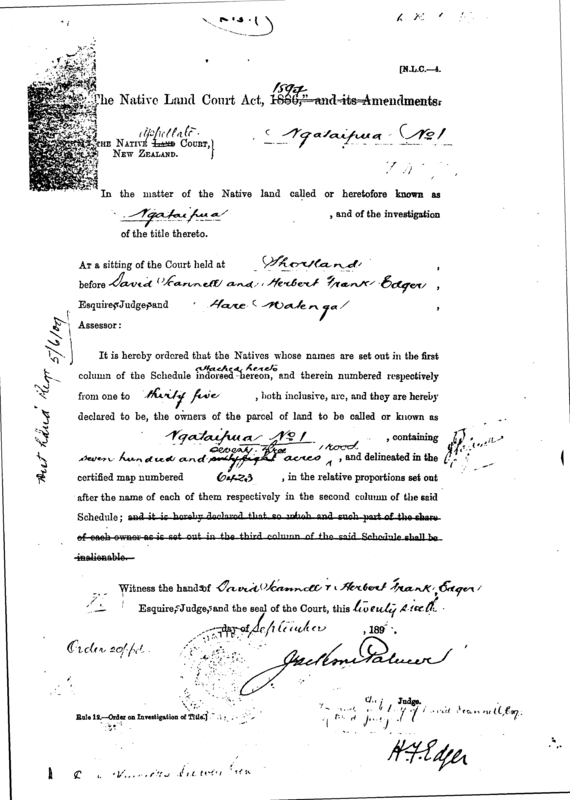 [N.L.C.—4.
The Native Land Court Act, 1894 1886," and its Amendments.
Appellate
THE NATIVE LAND COURT,
NEW ZEALAND.
Ngataipua No 1
In the matter of the Native land called or heretofore known as
Ngataipua , and of the investigation
of the title thereto.
AT a sitting of the Court held at Shortland ,
before David Scannell and Herbert Frank Edger ,
Esquires, Judges, and Hare Matenga ,
Assessor:
It is hereby ordered that the Natives whose names are set out in the first
attached hereto
column of the Schedule indorsed hereon, and therein numbered respectively
from one to thirty five , both inclusive, are, and they are hereby
declared to be, the owners of the parcel of land to be called or known as
Ngataipua No 1 , containing
seventy three rood
seven hundred and acres , and delineated in the
certified map numbered 6423 , in the relative proportions set out
after the name of each of them respectively in the second column of the said
Schedule; and it is hereby declared that so much and such part of the share
of each owner as is set out in the third column of the said Schedule shall be
inalienable.
Witness the hands of David Scannell & Herbert Frank Edger
Esquires, Judges, and the seal of the Court, this twenty sixth
day of September , 189
Order 20/ pd.
Jackson Palmer
Chf Judge.
David Scannell, Esq.
Rule 12.—Order on Investigation of Title.]
H.F. Edger
5/6/09